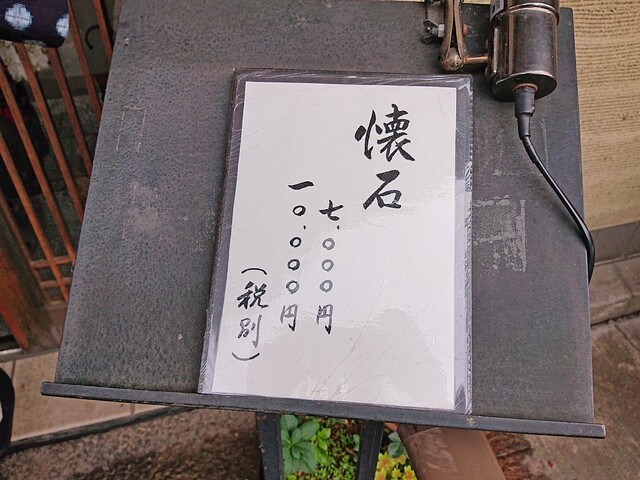 懐石
七、〇〇〇円
一〇、〇〇〇円
(税別)